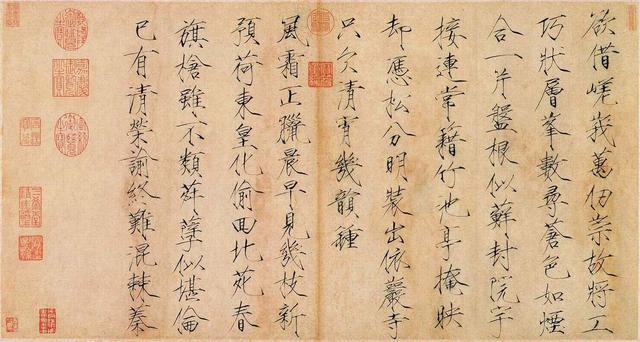 欲借嵯峩萬仞崇故將工
巧狀層峯數尋蒼色如煙
合一片盤根似蘚封院宇
接連常藉竹池亭掩映
却應松分明裝出依巖寺
只欠清宵幾韻鍾
風霜正臘晨早見幾枝新
預荷東皇化偷回北苑春
旗槍雖不類荈孽似堪倫
已有清榮諭終難混棘蓁